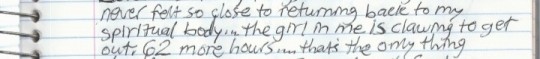 never felt so close to returning back to my
spiritual body... the girl in me is clawing to get
out. 62 more hours.... that's the only thing